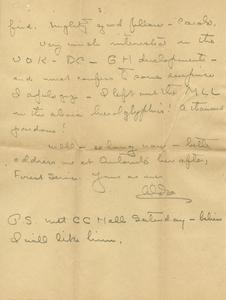 2.
find. Mighty good fellow - Carlo.
Very much interested in the
WOR - DC - GH developments -
and must confess to some surprise
I apologize - I left out the MLL
in the above hieroglyphics! A thousand
pardons!
Well - so long now - better
address me at Orlando hereafter,
Forest Service. Yours as ever
P.S. Met CC Hall Saturday - believe
I will like him.